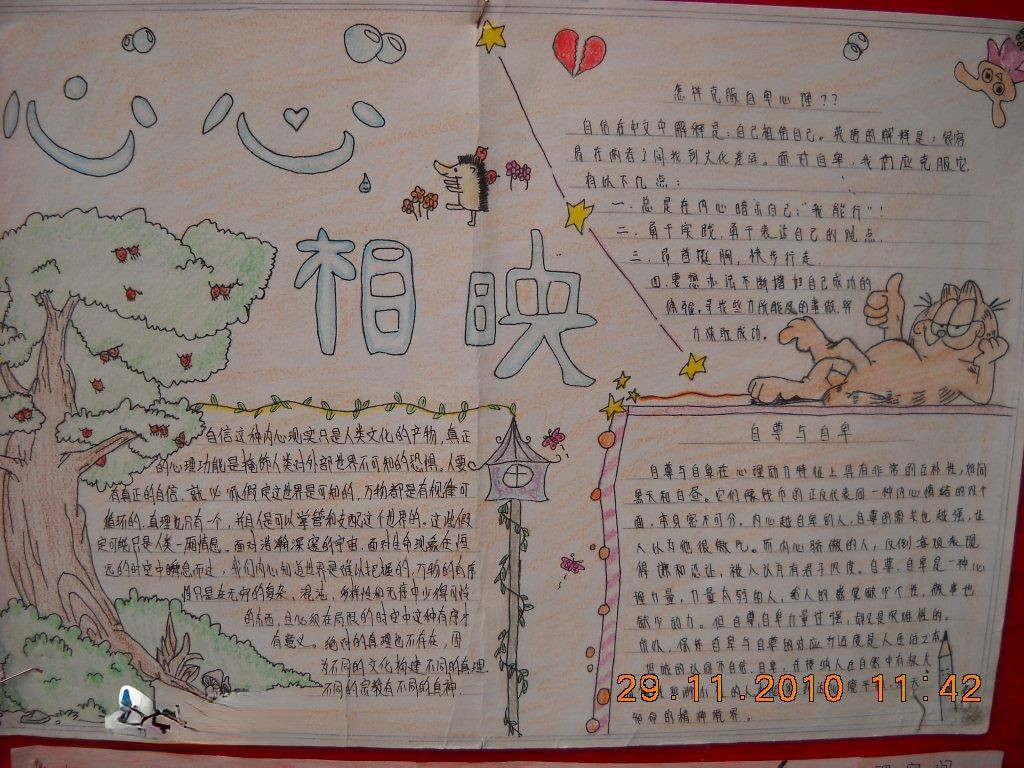 心心
相映
怎样克服自卑心理??
自信在中文中解释是:自己相信自己。英语的解释是:很容
易在两者之间找到文化差异。面对自卑,我们应克服它,
有以下几点:
一.总是在内心暗示自己:"我能行"!
二.勇于实践,勇于表达自己的观点.
三.昂首挺胸,快步行走.
四.要想办法不断增加自己成功的
体验。寻找些力所能及的事做,努
力获取成功。
自信这种内心现实只是人类文化的产物,真正
的心理功能是掩饰人类对外部世界不可知的恐惧。人要
有真正的自信,就必须假定这世界是可知的,万物都是有规律可
循环的,真理也只有一个,并且是可以掌管和支配这个世界的。这些假
定可能只是人类一厢情愿。面对浩瀚深邃的宇宙,面对生命现象在恒
远的时空中瞬息而过,我们内心知道世界是难以把握的,万物的有序
性只是在无穷的复杂、混沌,多样性和无序中少得可怜
的东西,且必须在局限的时空中这种有序才
有意义。绝对的真理也不存在,因
为不同的文化构建不同的真理
不同的宗教有不同的真神.
自尊与自卑
自尊与自卑在心理动力特征上具有非常的互补性,如同
黑天和白昼。它们像钱币的正反代表同一种内心情结的双个
面,本身密不可分。内心越自卑的人,自尊的需求也越强,让
人认为他很傲气。而内心骄傲的人,反倒客观表现
得谦和忍让,被人认为有君子风度。自尊,自卑是一种心
理力量,力量太弱的人,给人的感觉缺少个性,做事也
缺少动力。但自尊自卑力量过强,却是灾难性的.
所以,保持自卑与自尊的对应力适度是人生活之本
坦诚的认同不自信,自卑,
知命的精神境界。
29.11.2010 11:42